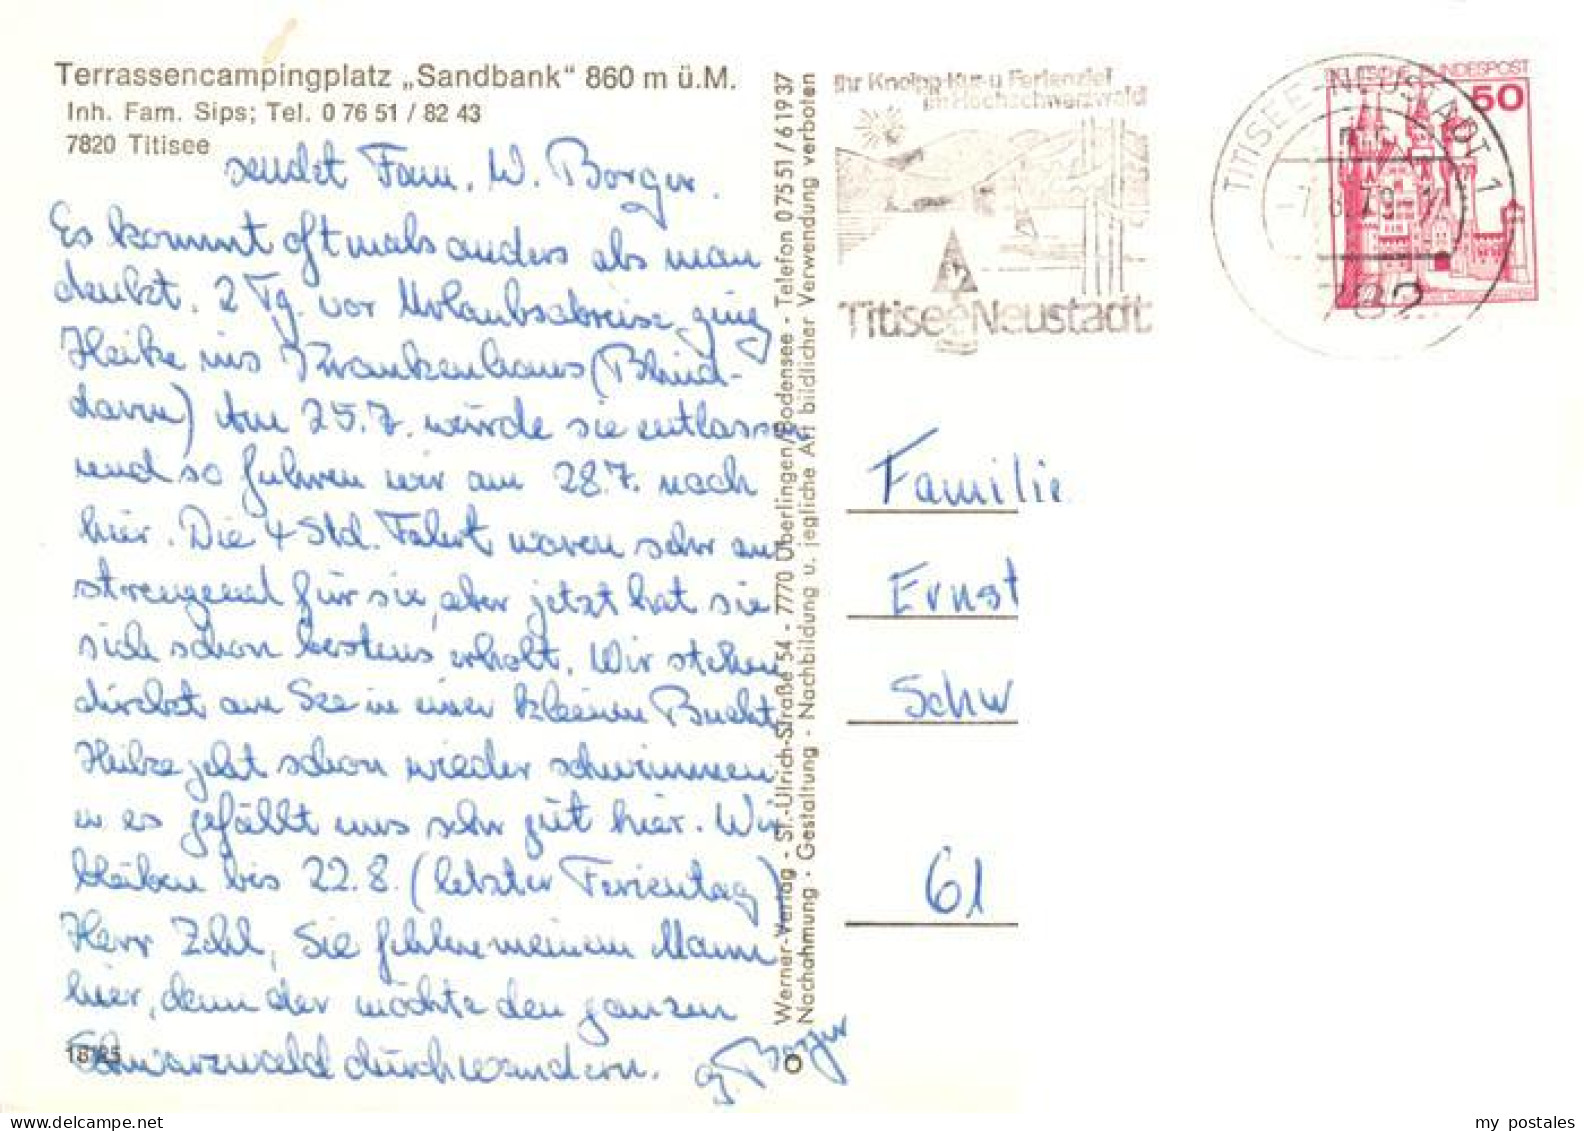 Terrassencampingplatz „Sandbank“ 860 m ü.M.
Inh. Fam. Sips; Tel. 0 76 51 / 82 43
7820 Titisee
sendet Fam. W. Borger.
Es kommt oftmals anders als man
denkt. 2 Tg. vor Urlaubsabreise ging
Heike ins Krankenhaus (Blind-
darm) Am 25.7. wurde sie entlassen
und so fuhren wir am 28.7. nach
hier. Die 4 Std. Fahrt waren sehr an
strengend für sie, aber jetzt hat sie
sich schon bestens erholt. Wir stehen
direkt am See in einer kleinen Bucht
Heike geht schon wieder schwimmen
u es gefällt uns sehr gut hier. Wir
bleiben bis 22.8. (letzter Ferientag)
Herr Zehl, Sie fehlen meinem Mann
hier, denn der möchte den ganzen
Schwarzwald durchwandern. G. Borger
18125
Werner-Verlag - St.-Ulrich-Straße 54 - 7770 Überlingen/Bodensee - Telefon 0 75 51 / 6 19 37
Nachahmung · Gestaltung - Nachbildung u. jegliche Art bildlicher Verwendung verboten
Ihr Kneipp-Kur- u. Ferienziel
im Hochschwarzwald
Titisee-Neustadt
TITISEE-NEUSTADT 1
782
BUNDESPOST
50
Familie
Ernst
Schw
61
my postales